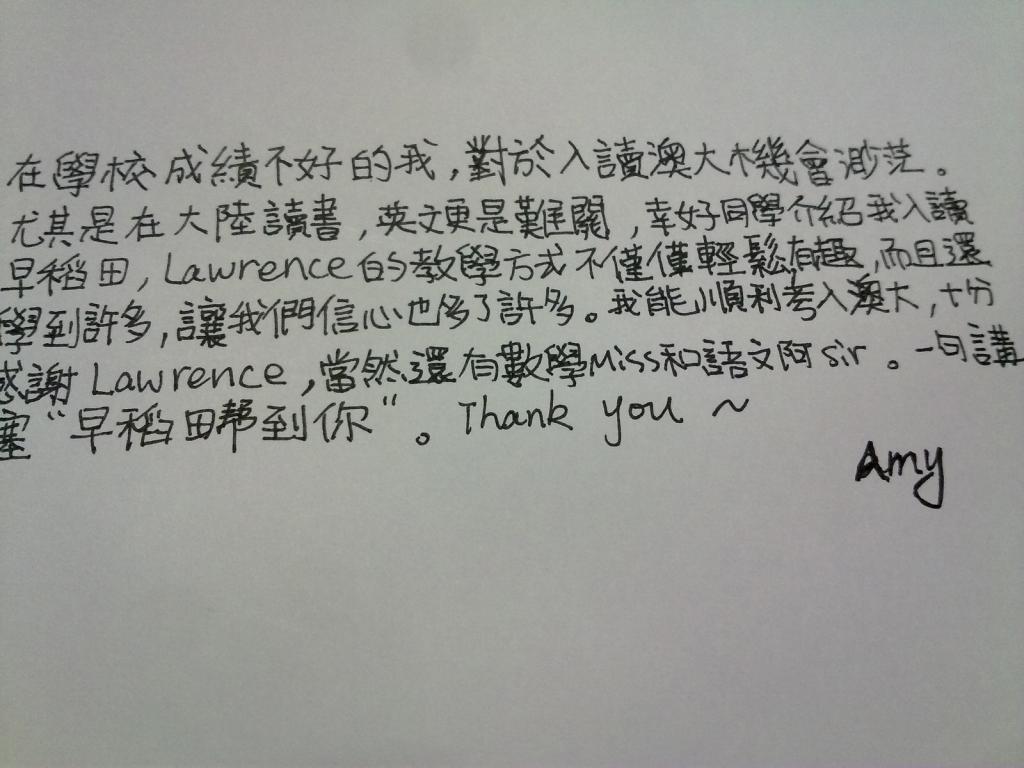 在學校成績不好的我,對於入讀澳大機會渺茫。
尤其是在大陸讀書,英文更是難關,幸好同學介紹我入讀
早稻田,Lawrence的教學方式不僅僅輕鬆有趣,而且還
學到許多,讓我們信心也多了許多。我能順利考入澳大,十分
感謝Lawrence,當然還有數學Miss和語文阿sir。一句講
塞“早稻田帮到你”。Thank you ~
Amy